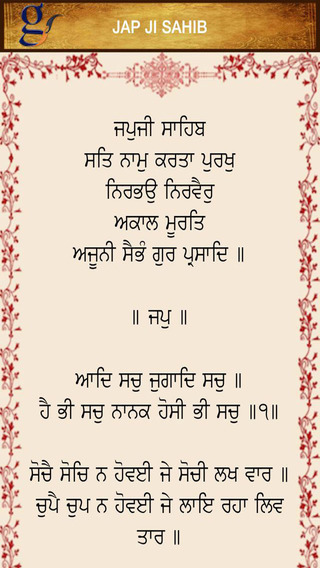 JAP JI SAHIB
ਜਪੁਜੀ ਸਾਹਿਬ
ਸਤਿ ਨਾਮੁ ਕਰਤਾ ਪੁਰਖੁ
ਨਿਰਭਉ ਨਿਰਵੈਰੁ
ਅਕਾਲ ਮੂਰਤਿ
ਅਜੂਨੀ ਸੈਭੰ ਗੁਰ ਪ੍ਰਸਾਦਿ ॥
॥ ਜਪੁ ॥
ਆਦਿ ਸਚੁ ਜੁਗਾਦਿ ਸਚੁ ॥
ਹੈ ਭੀ ਸਚੁ ਨਾਨਕ ਹੋਸੀ ਭੀ ਸਚੁ ॥੧॥
ਸੋਚੈ ਸੋਚਿ ਨ ਹੋਵਈ ਜੇ ਸੋਚੀ ਲਖ ਵਾਰ ॥
ਚੁਪੈ ਚੁਪ ਨ ਹੋਵਈ ਜੇ ਲਾਇ ਰਹਾ ਲਿਵ
ਤਾਰ ॥